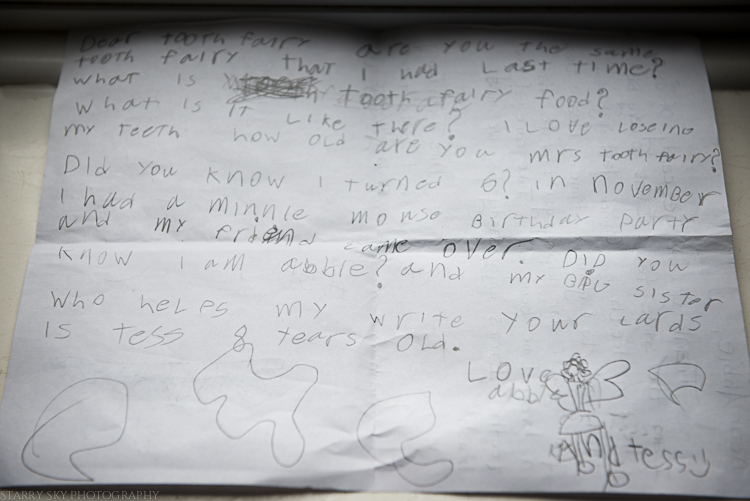 Dear tooth fairy are you the same
tooth fairy that I had Last time?
what is tooth a fairy food?
what is it Like there? I Love Loseing
my teeth how old are you mrs tooth fairy?
Did you know I turned 6? in november
I had a minnie monse Birthday party
and my friend came over. DiD you
know i am abbie? and my Big sister
who helps my write your cards
is tess 8 tears old.
Love
abbie
And tess
STARRY SKY PHOTOGRAPHY